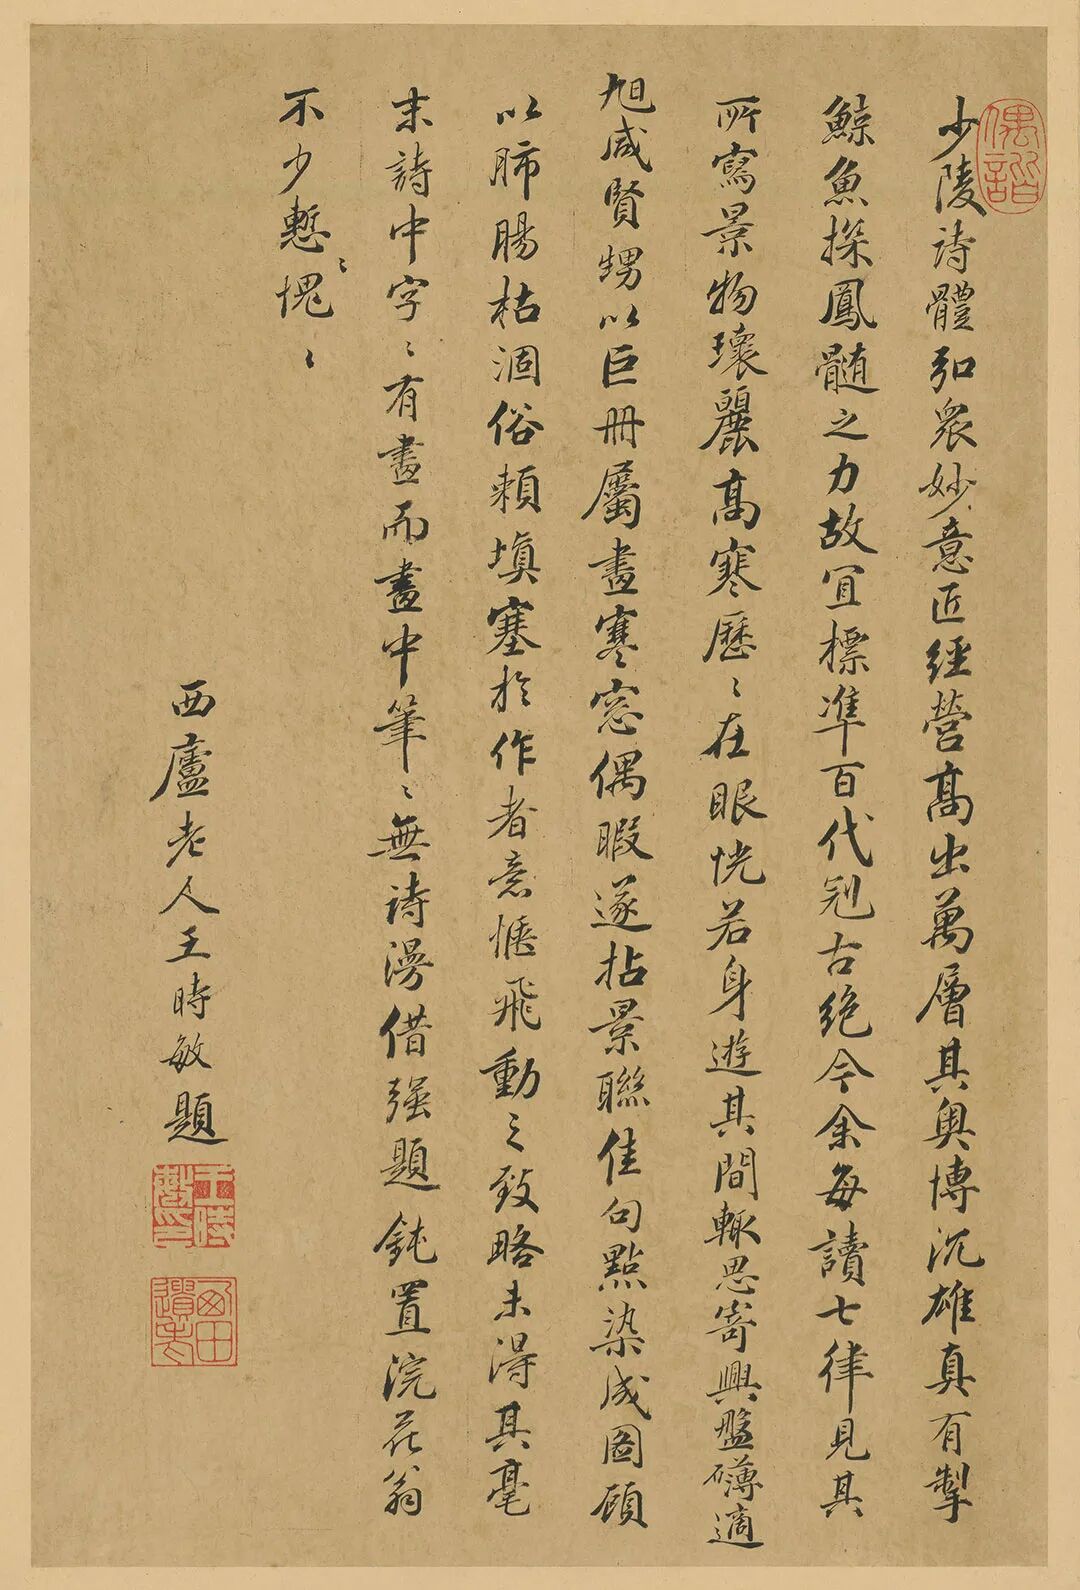 偶諧
少陵詩體弘衆妙意匠經營高出萬層其奥博沉雄真有掣
鯨魚探鳳髓之力故宜標準百代冠古絶今余每讀七律見其
所寫景物瓌麗高寒歷〻在眼恍若身遊其間輒思寄興盤礴適
旭咸賢甥以巨冊屬畫寒窓偶暇遂拈景聯佳句點染成圖顧
以肺腸枯涸俗賴填塞於作者意惬飛動之致略未得其毫
末詩中字〻有畫而畫中筆〻無詩漫借强題鈍置浣花翁
不少慙〻愧〻
西廬老人王時敏題
王時敏印
西田遺老